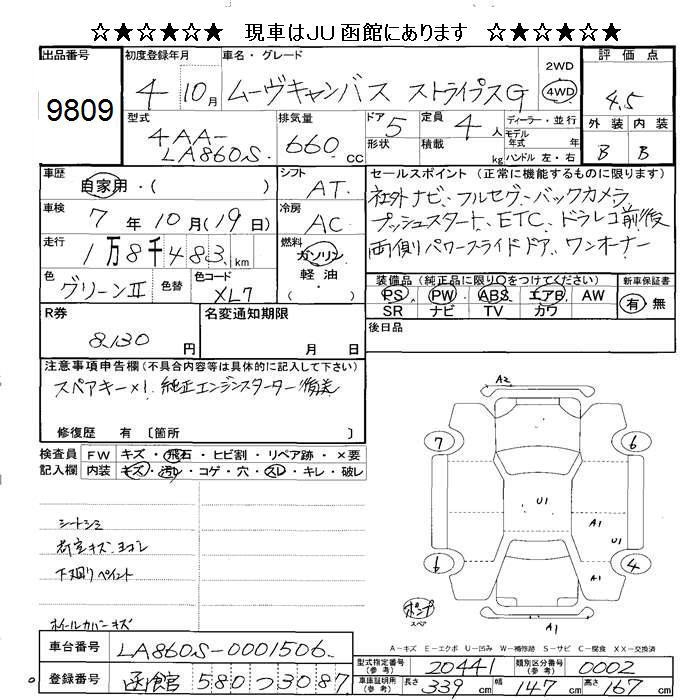 ☆★☆★☆★ 現車はJU函館にあります ☆★☆★☆★
出品番号
9809
初度登録年月
4 10月
車名・グレード
ムーヴキャンバス ストライプスG
2WD
4WD
評価点
4.5
外装 内装
B B
型式
4AA-
LA860S
排気量
660 cc
ドア 5
形状
定員 4人
積載 kg
ディーラー・並行
モデル
年式 年式
ハンドル 左・右
車歴
自家用・( )
シフト
AT
車検
7年10月(19日)
冷房
AC
走行
1万8千483km
燃料
ガソリン
軽油
( )
色
グリーンII
色替
色コード
XL7
セールスポイント(正常に機能するものに限ります)
社外ナビ、フルセグ、バックカメラ
プッシュスタート、ETC、ドラレコ前後
両側パワースライドドア、ワンオーナー
装備品(純正品に限り○をつけてください)
PS PW ABS エアB AW
SR ナビ TV カワ
新車保証書
有・無
R券
8,130円
名変通知期限
月 日
後日品
注意事項申告欄(不具合内容等は具体的に記入して下さい)
スペアキー×1、純正エンジンスターター備美
修復歴 有 〔箇所 〕
検査員
記入欄
FW キズ・飛石・ヒビ割・リペア跡・×要
内装 キズ・汚レ・コゲ・穴・スレ・キレ・破レ
シートシミ
荷室キズ・ヨゴレ
下廻りペイント
ホイールカバーキズ
A2
7
6
U1
A1
A1
6
4
A1
スペ
A-キズ E-エクボ U-凹み W-補修跡 S-サビ C-腐食 XX-交換済
車台番号
LA860S-0001506
登録番号
函館 580 つ 3087
型式指定番号
(参考)
20441
類別区分番号
(参考)
0002
車庫証明用
(参考)
長さ 339cm 幅 147cm 高さ 167cm